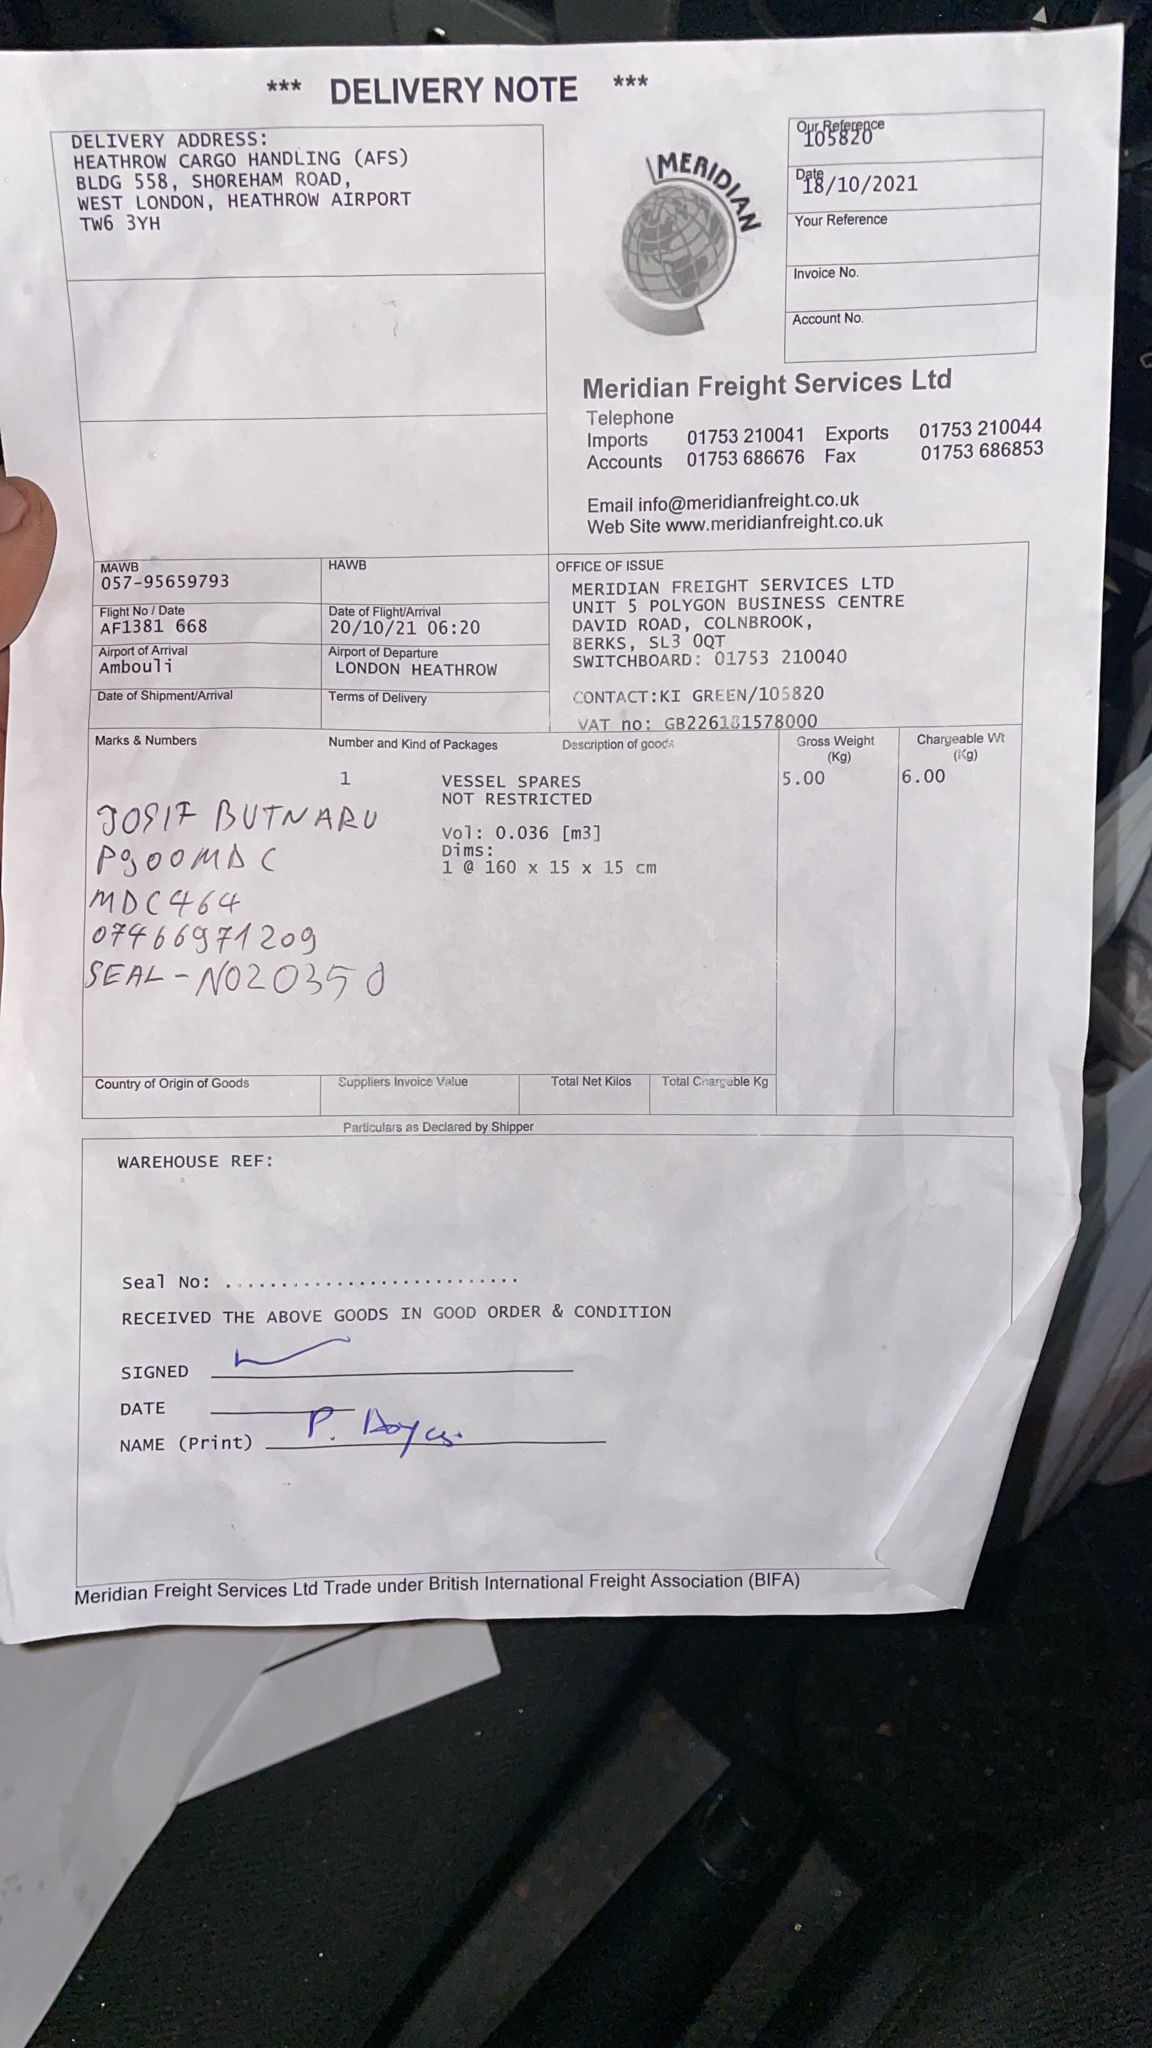 *** DELIVERY NOTE ***
DELIVERY ADDRESS:
HEATHROW CARGO HANDLING (AFS)
BLDG 558, SHOREHAM ROAD,
WEST LONDON, HEATHROW AIRPORT
TW6 3YH
MERIDIAN
Our Reference
105820
Date
18/10/2021
Your Reference
Invoice No.
Account No.
Meridian Freight Services Ltd
Telephone
Imports 01753 210041 Exports 01753 210044
Accounts 01753 686676 Fax 01753 686853
Email info@meridianfreight.co.uk
Web Site www.meridianfreight.co.uk
MAWB
057-95659793
HAWB
Flight No / Date
AF1381 668
Date of Flight/Arrival
20/10/21 06:20
Airport of Arrival
Ambouli
Airport of Departure
LONDON HEATHROW
Date of Shipment/Arrival
Terms of Delivery
OFFICE OF ISSUE
MERIDIAN FREIGHT SERVICES LTD
UNIT 5 POLYGON BUSINESS CENTRE
DAVID ROAD, COLNBROOK,
BERKS, SL3 0QT
SWITCHBOARD: 01753 210040
CONTACT:KI GREEN/105820
VAT no: GB226181578000
Marks & Numbers
Number and Kind of Packages
Description of goods
Gross Weight
(Kg)
Chargeable Wt
(Kg)
1
VESSEL SPARES
NOT RESTRICTED
5.00
6.00
Vol: 0.036 [m3]
Dims:
1 @ 160 x 15 x 15 cm
JOSIF BUTNARU
P900MDC
MDC464
07466971209
SEAL - NO20350
Country of Origin of Goods
Suppliers Invoice Value
Total Net Kilos
Total Chargeble Kg
Particulars as Declared by Shipper
WAREHOUSE REF:
Seal No: ..........................
RECEIVED THE ABOVE GOODS IN GOOD ORDER & CONDITION
SIGNED
DATE
NAME (Print) P.
Meridian Freight Services Ltd Trade under British International Freight Association (BIFA)